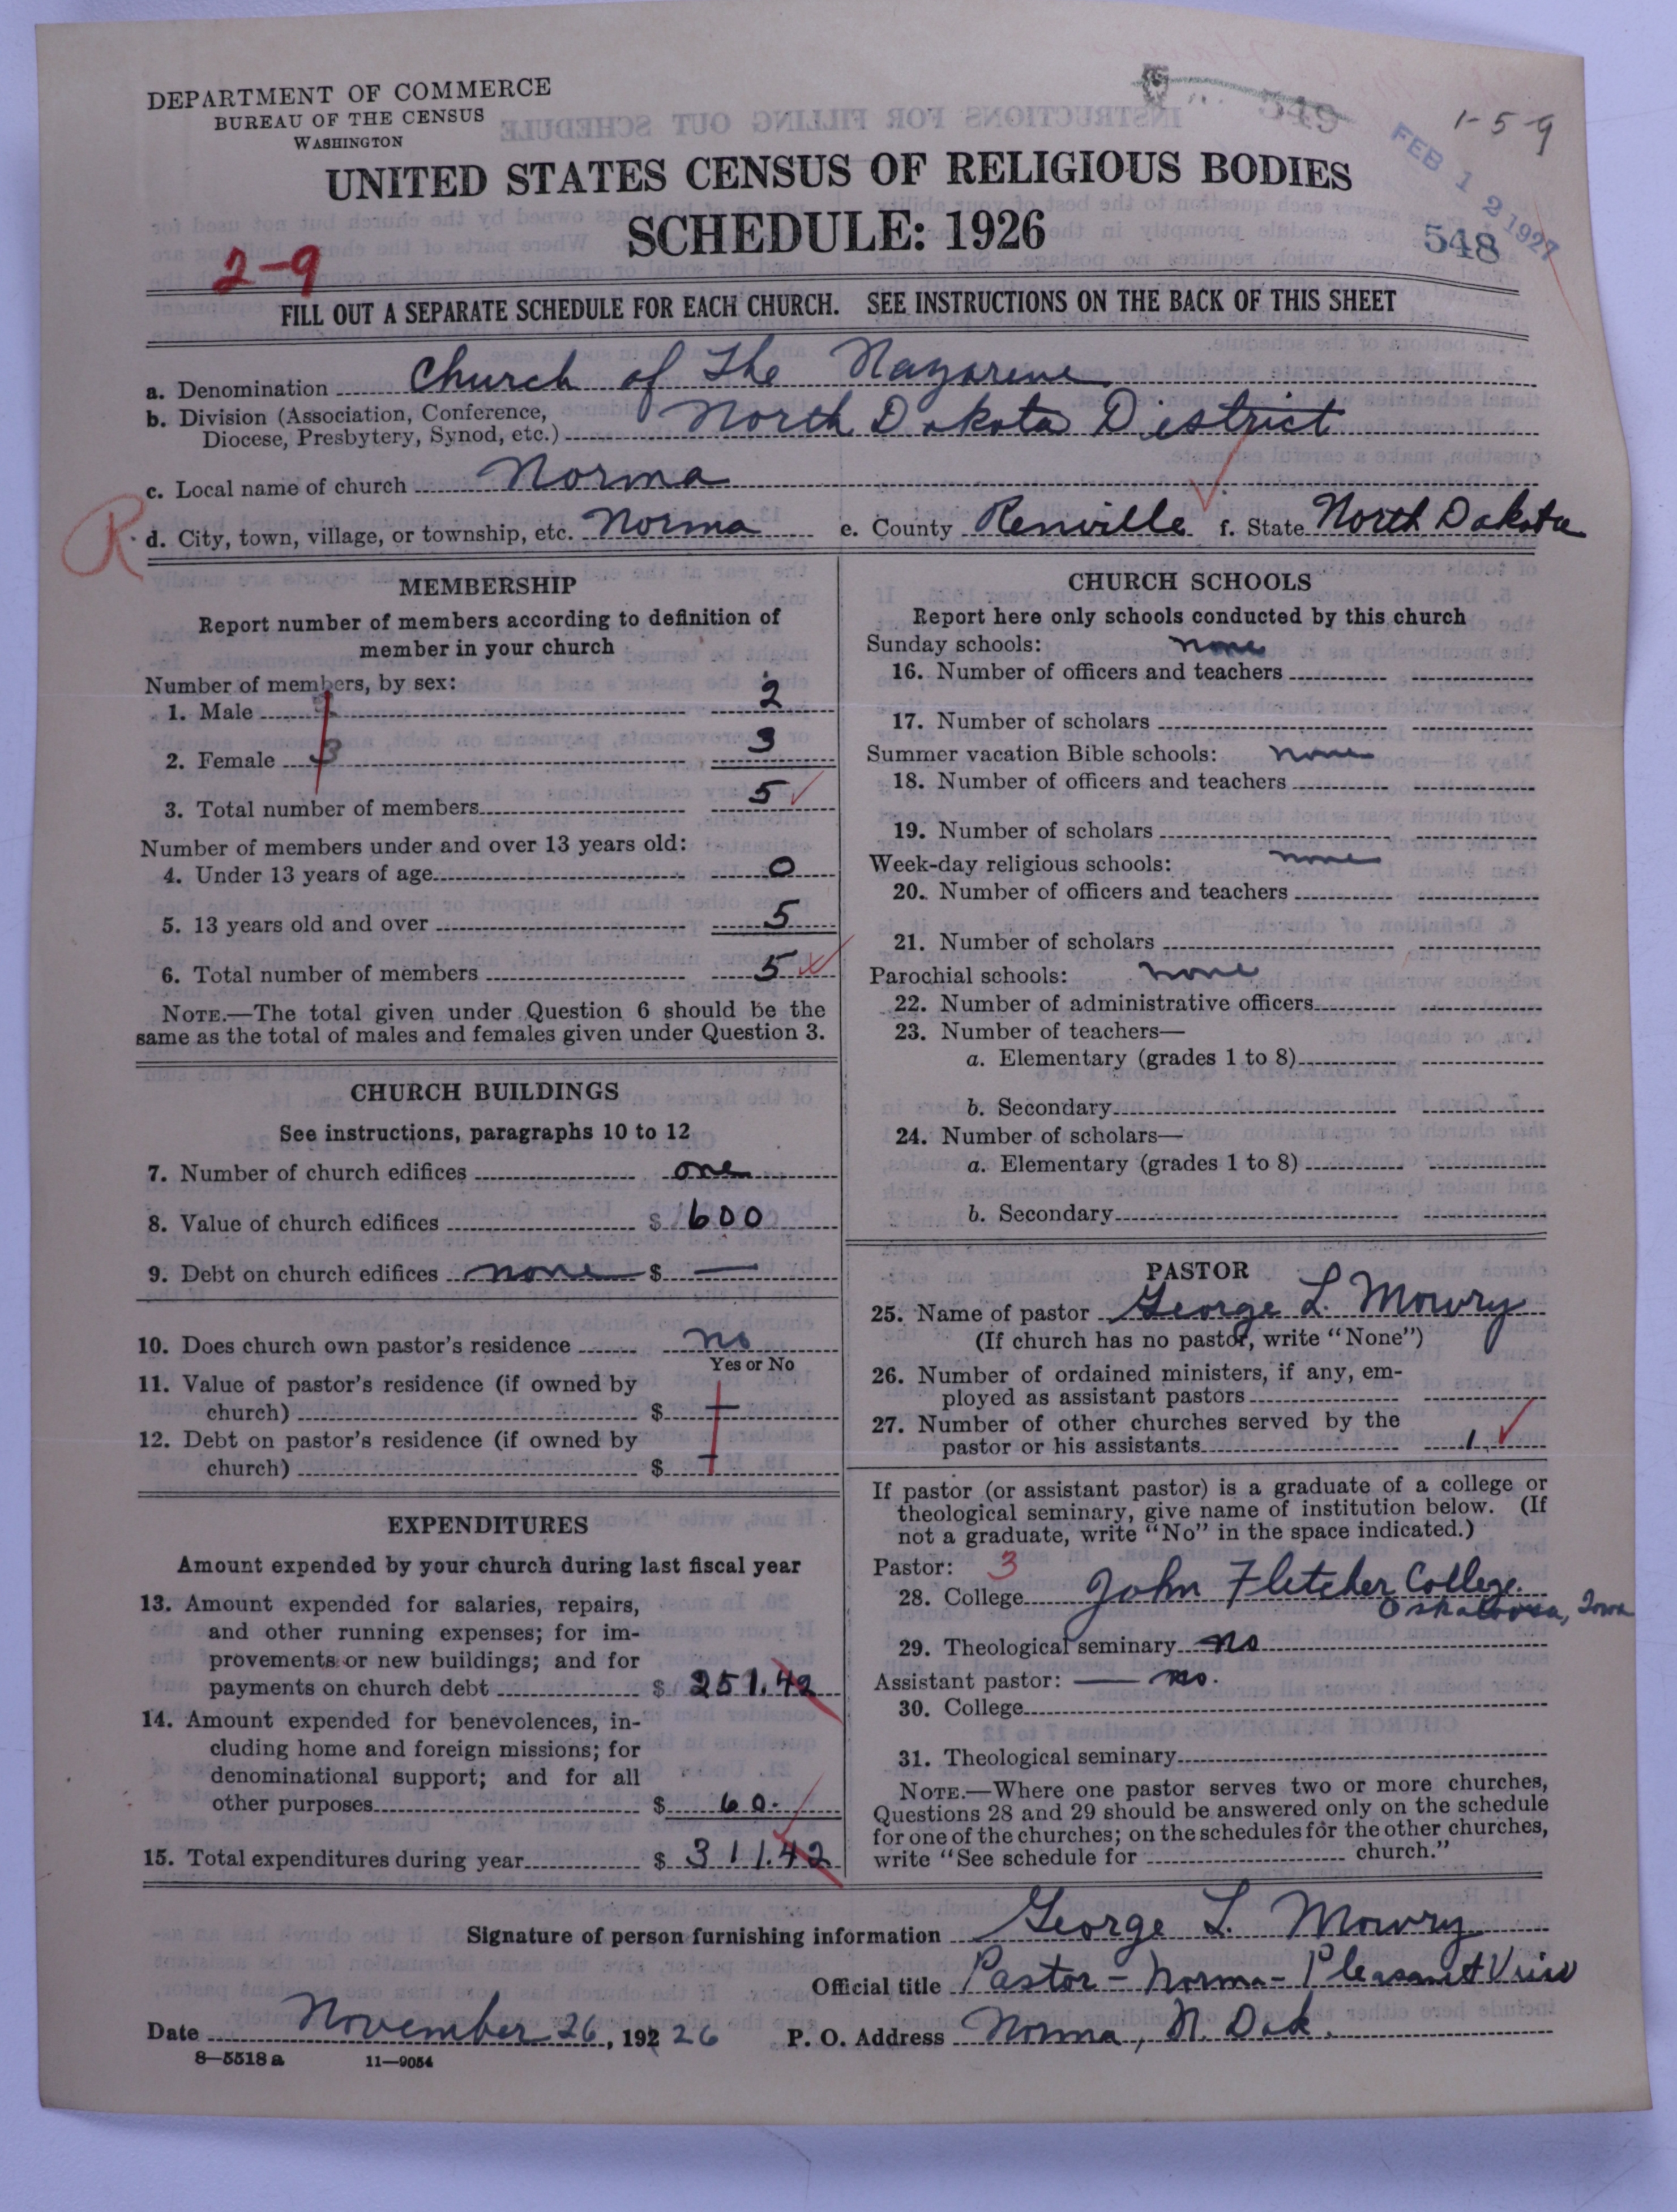 DEPARTMENT OF COMMERCE
BUREAU OF THE CENSUS
WASHINGTON
549
1-5-9
FEB 12 1927
UNITED STATES CENSUS OF RELIGIOUS BODIES
SCHEDULE: 1926
548
2-9
FILL OUT A SEPARATE SCHEDULE FOR EACH CHURCH. SEE INSTRUCTIONS ON THE BACK OF THIS SHEET
a. Denomination Church of The Nazarene
b. Division (Association, Conference,
Diocese, Presbytery, Synod, etc.) North Dakota District
c. Local name of church Norma
R
d. City, town, village, or township, etc. Norma e. County Renville f. State North Dakota
MEMBERSHIP
Report number of members according to definition of
member in your church
Number of members, by sex:
1. Male 2
2. Female 3 3
3. Total number of members 5
Number of members under and over 13 years old:
4. Under 13 years of age 0
5. 13 years old and over 5
6. Total number of members 5
NOTE.—The total given under Question 6 should be the
same as the total of males and females given under Question 3.
CHURCH BUILDINGS
See instructions, paragraphs 10 to 12
7. Number of church edifices one
8. Value of church edifices $ 600
9. Debt on church edifices none $ —
10. Does church own pastor's residence no
Yes or No
11. Value of pastor's residence (if owned by
church) $ —
12. Debt on pastor's residence (if owned by
church) $ —
EXPENDITURES
Amount expended by your church during last fiscal year
13. Amount expended for salaries, repairs,
and other running expenses; for im-
provements or new buildings; and for
payments on church debt $ 251.42
14. Amount expended for benevolences, in-
cluding home and foreign missions; for
denominational support; and for all
other purposes $ 60.
15. Total expenditures during year $ 311.42
CHURCH SCHOOLS
Report here only schools conducted by this church
Sunday schools: none
16. Number of officers and teachers
17. Number of scholars
Summer vacation Bible schools: none
18. Number of officers and teachers
19. Number of scholars
Week-day religious schools: none
20. Number of officers and teachers
21. Number of scholars
Parochial schools: none
22. Number of administrative officers
23. Number of teachers—
a. Elementary (grades 1 to 8)
b. Secondary
24. Number of scholars—
a. Elementary (grades 1 to 8)
b. Secondary
PASTOR
25. Name of pastor George L. Mowry
(If church has no pastor, write "None")
26. Number of ordained ministers, if any, em-
ployed as assistant pastors
27. Number of other churches served by the
pastor or his assistants 1
If pastor (or assistant pastor) is a graduate of a college or
theological seminary, give name of institution below. (If
not a graduate, write "No" in the space indicated.)
Pastor: 3
28. College John Fletcher College.
Oskaloosa, Iowa
29. Theological seminary no
Assistant pastor: — no.
30. College
31. Theological seminary
NOTE.—Where one pastor serves two or more churches,
Questions 28 and 29 should be answered only on the schedule
for one of the churches; on the schedules for the other churches,
write "See schedule for church."
Signature of person furnishing information George L. Mowry
Official title Pastor - Norma - Pleasant View
Date November 26, 192 26 P. O. Address Norma, N. Dak.
8—5518 a 11—9054